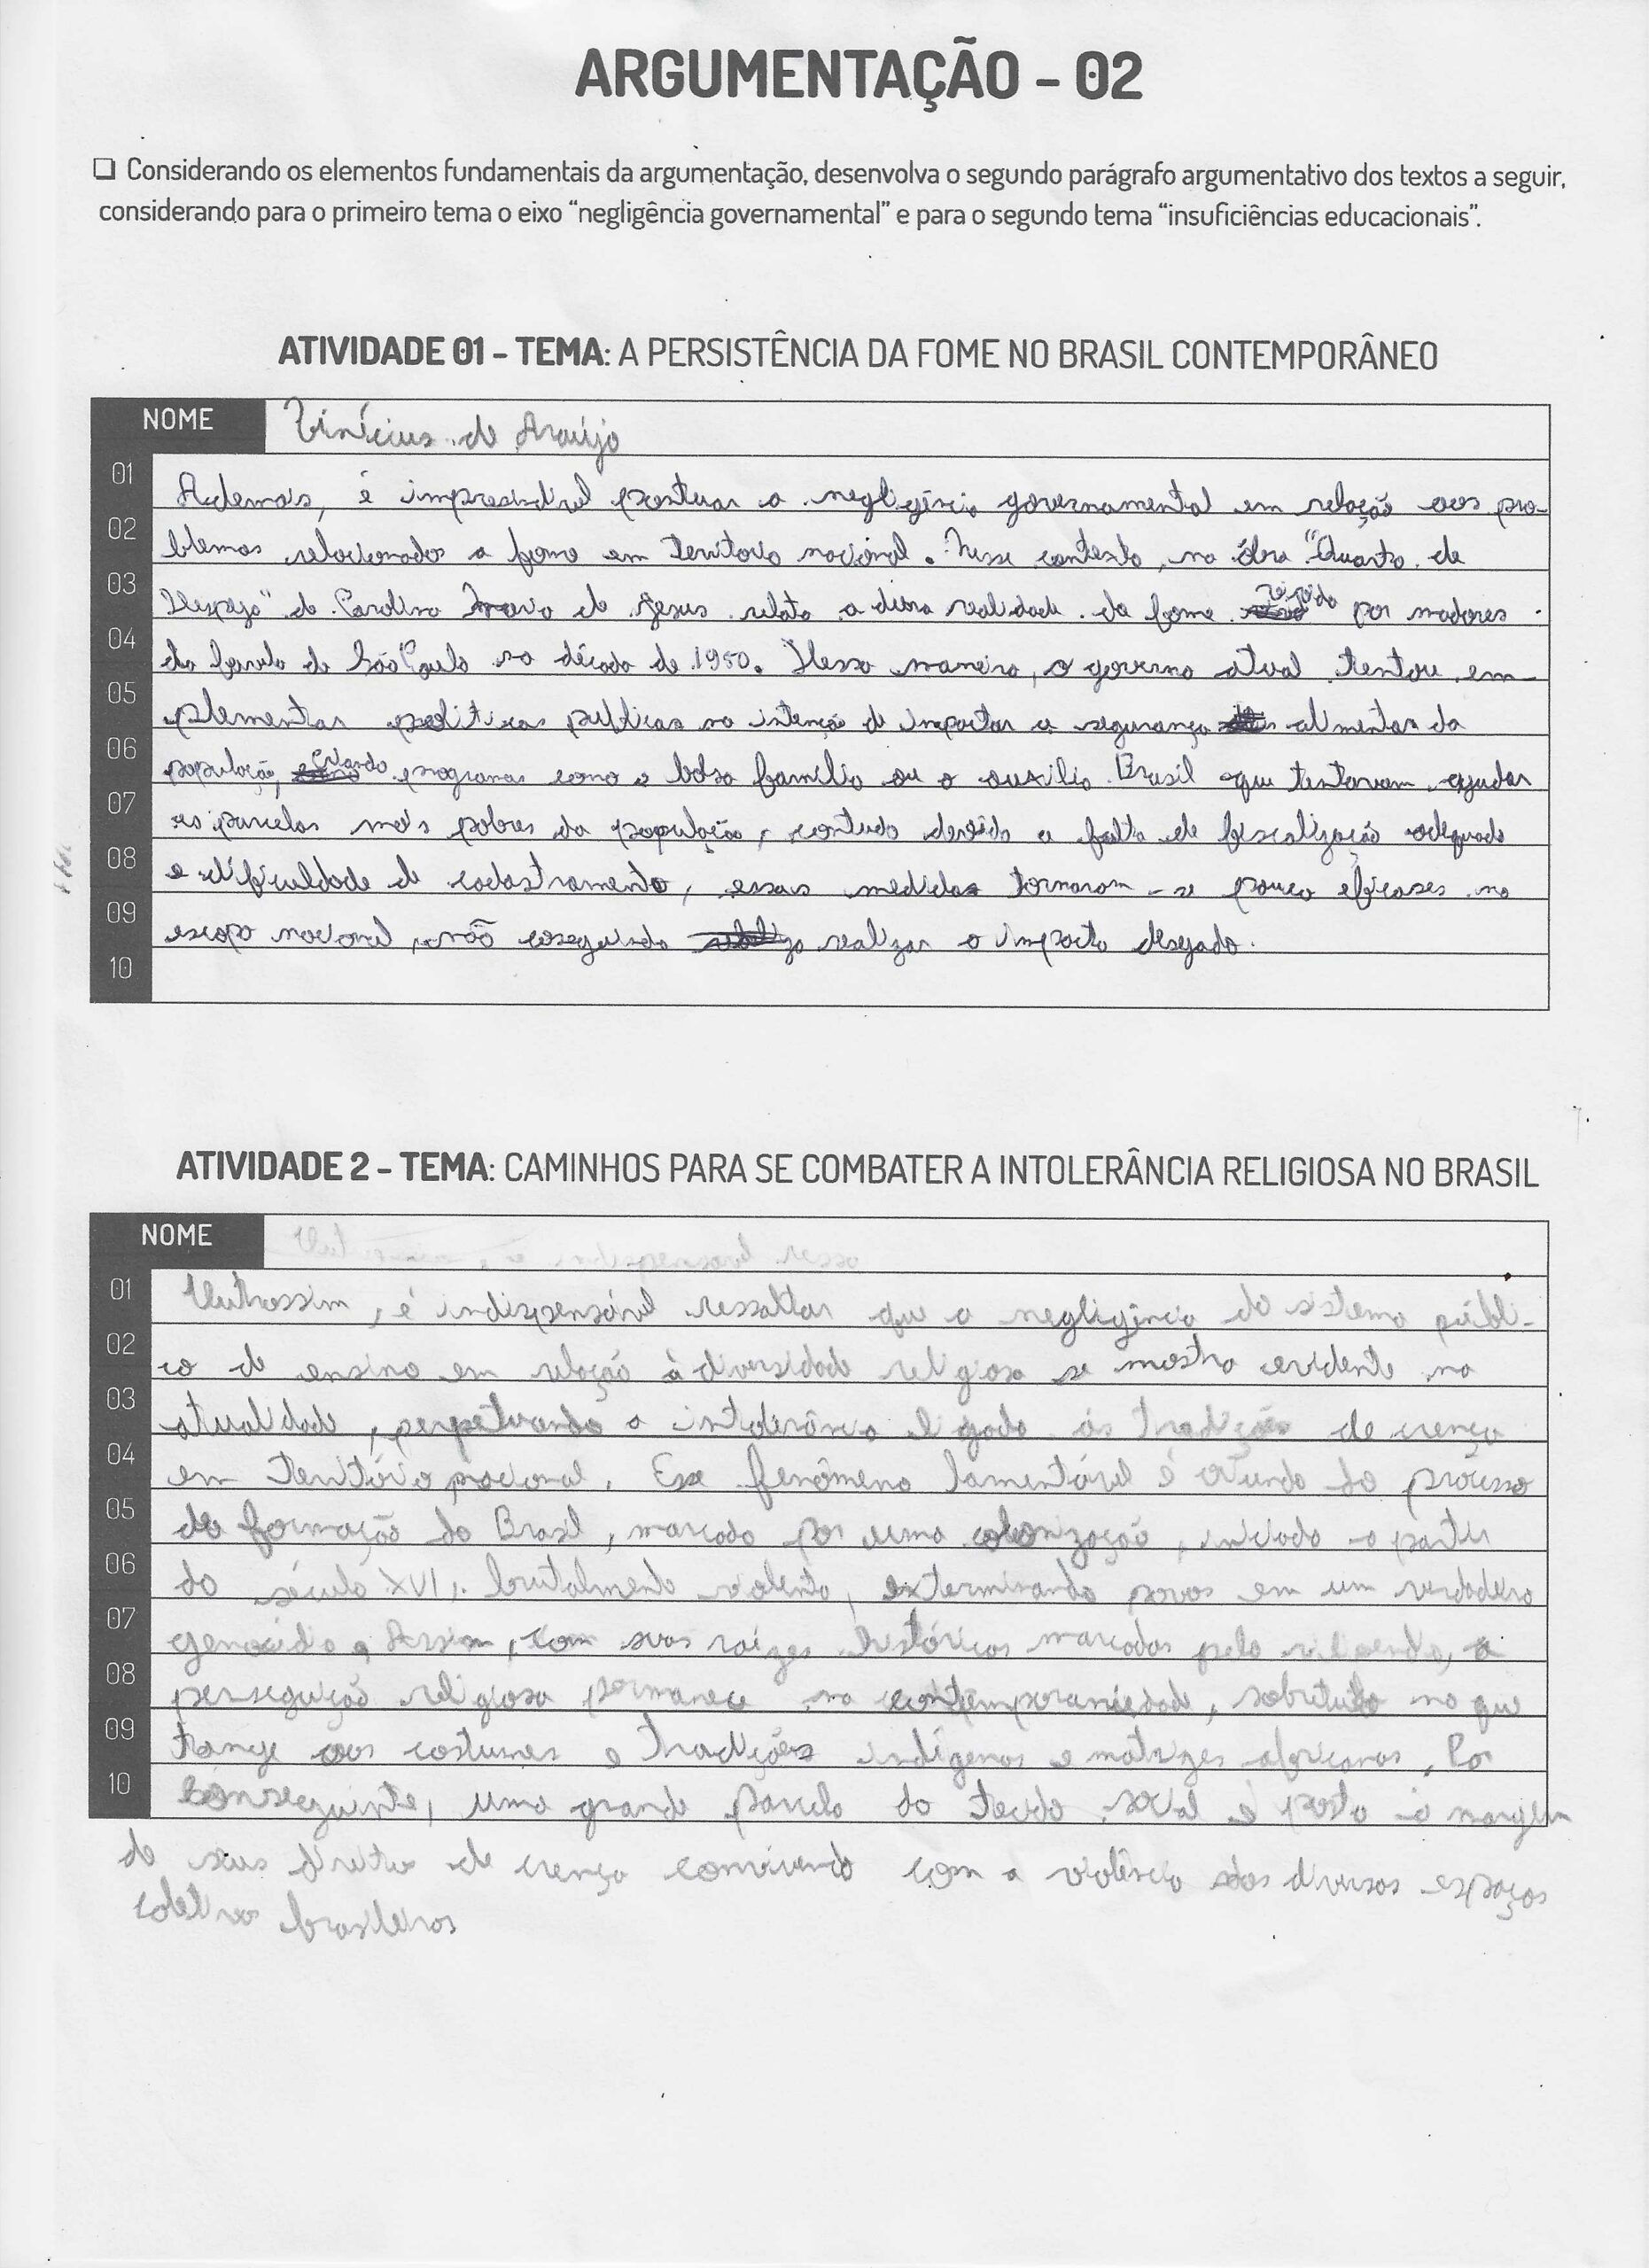 ARGUMENTAÇÃO - 02
❑ Considerando os elementos fundamentais da argumentação, desenvolva o segundo parágrafo argumentativo dos textos a seguir,
considerando para o primeiro tema o eixo “negligência governamental” e para o segundo tema “insuficiências educacionais”.
ATIVIDADE 01 - TEMA: A PERSISTÊNCIA DA FOME NO BRASIL CONTEMPORÂNEO
NOME Vinícius de Araújo
01 Ademais, é impresindivel pontuar a negligência governamental em relação aos pro-
02 blemas relacionados a fome em territorio nacional. Nesse contexto, na obra "Quarto de
03 Despejo" de Carolina Maria de Jesus relata a dura realidade da fome vivida por madores
04 da favela de São Paulo na década de 1950. Dessa maneira, o governo atual tentou em-
05 plementar politicas publicas na intenção de impactar a segurança alimentar da
06 população, criando programas como o bolsa família ou o auxilio Brasil que tentavam ajudar
07 as parcelas mais pobres da população, contudo devido a falta de fiscalização adequada
08 e dificuldade de cadastramento, essas medidas tornaram-se pouco eficases no
09 escopo nacional, não coseguindo realizar o impacto desejado.
10
ATIVIDADE 2 - TEMA: CAMINHOS PARA SE COMBATER A INTOLERÂNCIA RELIGIOSA NO BRASIL
NOME
01 Outrossim, é indispensável ressaltar que a negligência do sistema públi-
02 co de ensino em relação à diversidade religiosa se mostra evidente na
03 atualidade, perpetuando a intolerância ligada às tradições de crença
04 em território nacional. Esse fenômeno lamentável é oriundo do processo
05 de formação do Brasil, marcado por uma colonização, iniciada a partir
06 do século XVI, brutalmente violenta, exterminando povos em um verdadeiro
07 genocídio. Assim, com suas raízes históricas marcadas pela a
08 perseguição religiosa permanece na contemporaniedade, sobretudo no que
09 tange aos costumes e tradições indígenas e matrizes africanas. Por
10 conseguinte, uma grande parcela do tecido social é posta à margem
de seus direitos de crença convivendo com a violência nos diversos espaços
coletivos brasileiros